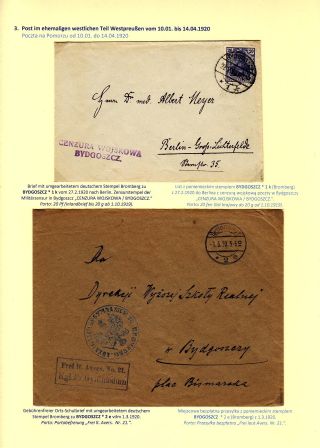 3. Post im ehemaligen westlichen Teil Westpreußen vom 10.01. bis 14.04.1920
Poczta na Pomorzu od 10.01. do 14.04.1920
Herrn Dr. med. Albert Meyer
CENZURA WOJSKOWA
BYDGOSZCZ.
Berlin-Groß-Lichterfelde
35.
Brief mit umgearbeitetem deutschem Stempel Bromberg zu
BYDGOSZCZ * 1 k vom 27.2.1920 nach Berlin. Zensurstempel der
Militärzensur in Bydgoszcz „CENZURA WOJSKOWA / BYDGOSZCZ."
Porto: 20 Pf (Inlandbrief bis 20 g ab 1.10.1919).
List z poniemieckim stemplem BYDGOSZCZ * 1 k (Bromberg)
z 27.2.1920 do Berlina,
„CENZURA WOJSKOWA / BYDGOSZCZ."
Porto: 20 fen (list krajowy do 20 g od 1.10.1919).
-1.3.20. 5-6N
* 2 e
Do
Dyrekcji Wyższej Szkoły Realnej
w Bydgoszczy
plac Bismarcka
Frei lt. Avers. No. 21.
Gebührenfreier Orts-Schulbrief mit umgearbeitetem deutschem
Stempel Bromberg zu BYDGOSZCZ * 2 e vom 1.3.1920.
Porto: Portobefreiung „Frei lt. Avers. Nr. 21.".
Miejscowa bezpłatna przesyłka z poniemieckim stemplem
BYDGOSZCZ * 2 e (Bromberg) z 1.3.1920.
Porto: Przesyłka bezpłatna „Frei laut Avers. Nr. 21.".